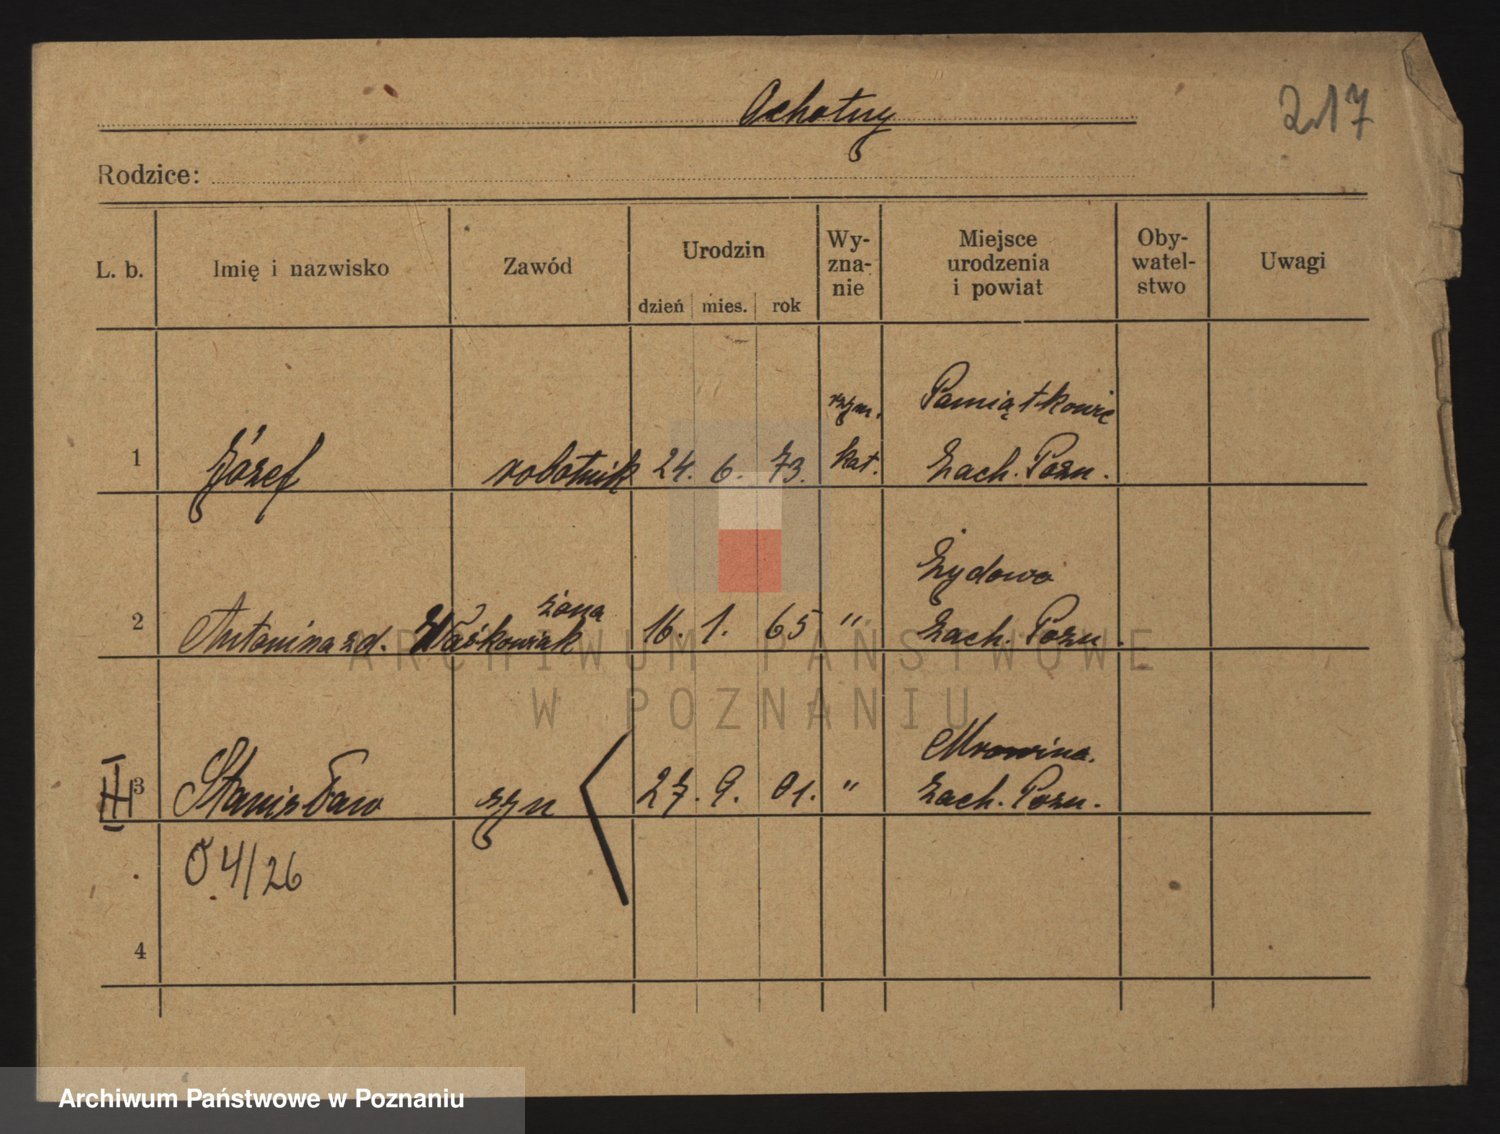 Ochotny
217
Rodzice:
L. b. Imię i nazwisko Zawód Urodzin dzień mies. rok Wy-zna-nie Miejsce urodzenia i powiat Oby-watel-stwo Uwagi
rzym. Pamiątkowie
1 Józef robotnik 24. 6. 73. kat. Zach. Pozn.
żona Żydowo
2 Antonina zd. Waśkowiak 16. 1. 65 " Zach. Pozn.
Mrowina.
3 Stanisław syn 27. 9. 01. " Zach. Pozn.
4/26
4
ARCHIWUM PAŃSTWOWE
W POZNANIU
Archiwum Państwowe w Poznaniu